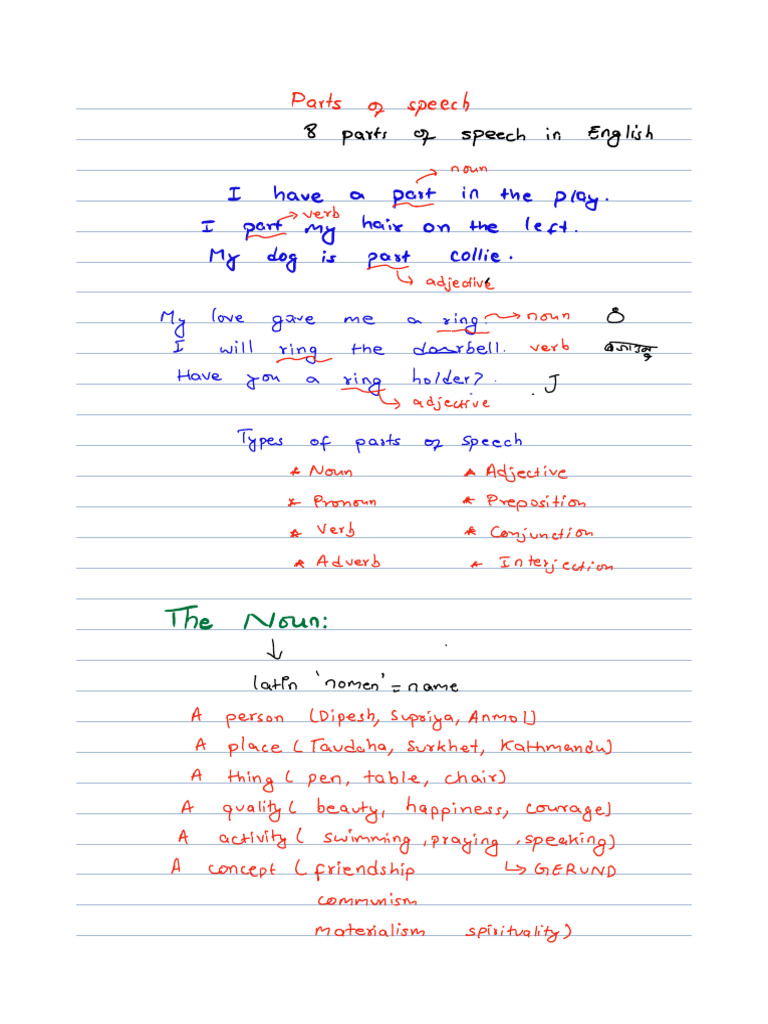 Parts of speech
8 parts of speech in English
noun
I have a part in the play.
verb
I part my hair on the left.
My dog is part collie.
adjective
My love gave me a ring. noun
I will ring the doorbell. verb
Have you a ring holder?
adjective
Types of parts of speech
* Noun * Adjective
* Pronoun * Preposition
* Verb * Conjunction
* Adverb * Interjection
The Noun:
latin 'nomen' = name
A person (Dipesh, Supriya, Anmol)
A place (Taudaha, Surkhet, Kathmandu)
A thing (pen, table, chair)
A quality (beauty, happiness, courage)
A activity (swimming, praying, speaking)
A concept (friendship GERUND
communism
materialism spirituality)